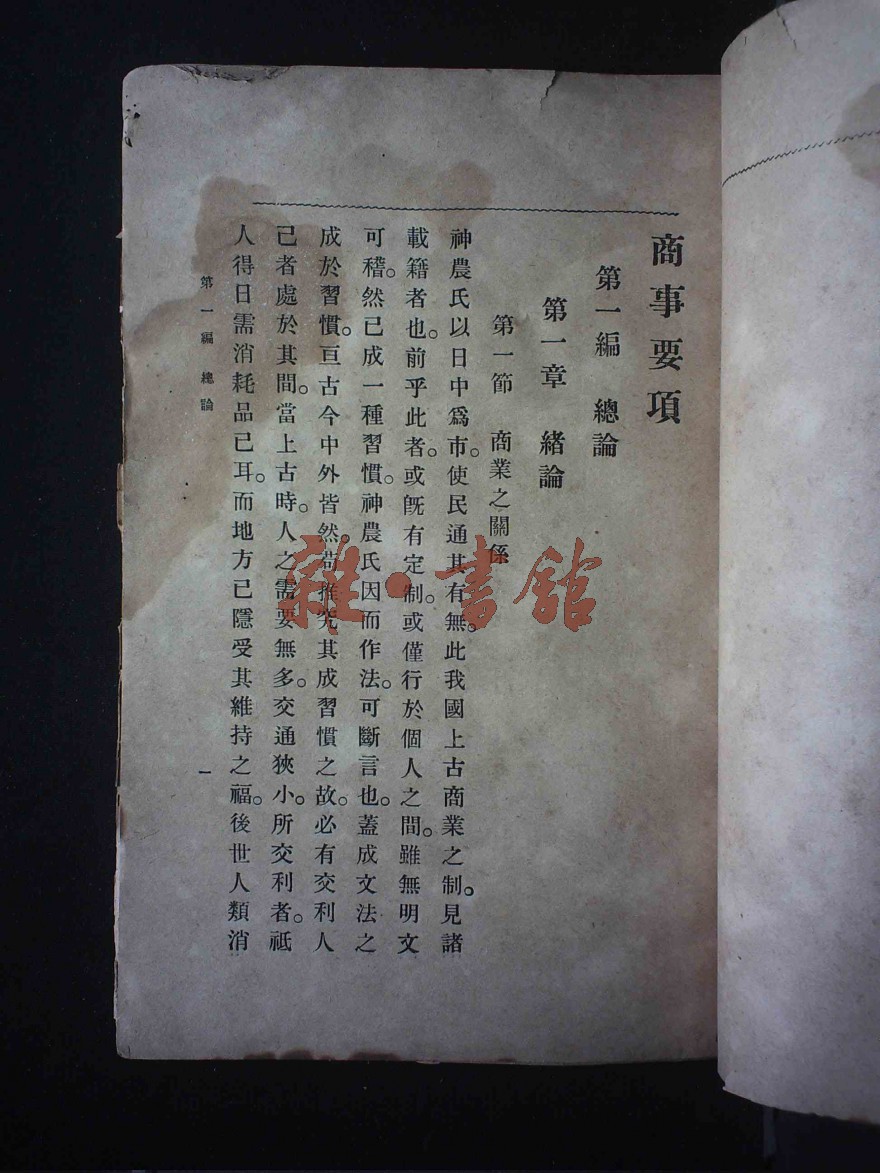 商事要項
第一編 總論
第一章 緒論
第一節 商業之關係
神農氏以日中爲市。使民通其有無。此我國上古商業之制。見諸
載籍者也。前乎此者。或旣有定制。或僅行於個人之間。雖無明文
可稽。然已成一種習慣。神農氏因而作法。可斷言也。蓋成文法之
成於習慣。亘古今中外皆然。苟推究其成習慣之故。必有交利人
己者處於其間。當上古時。人之需要無多。交通狹小。所交利者。祗
人得日需消耗品已耳。而地方已隱受其維持之福。後世人類消
第一編 總論
一
雜·書館